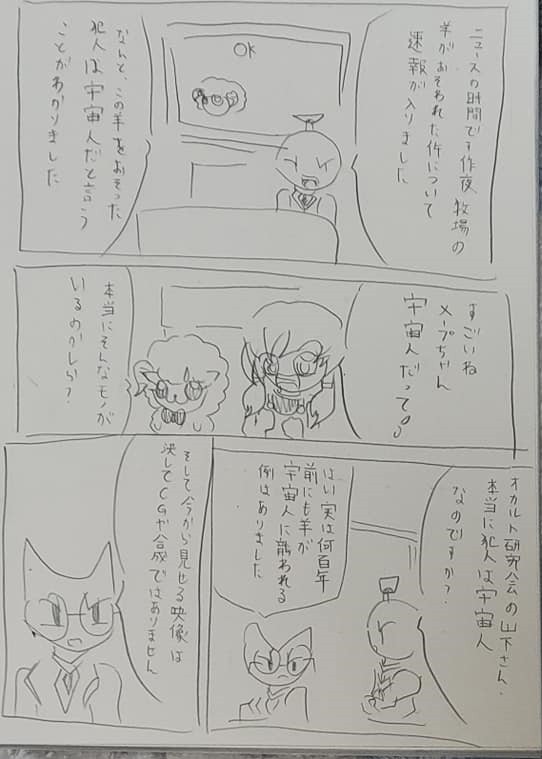 ニュースの時間です昨夜牧場の
羊がおそわれた件について
速報が入りました
OK
なんと、この羊をおそった
犯人は宇宙人だと言う
ことがわかりました
すごいね
メープちゃん
宇宙人だって
本当にそんなモノが
いるのかしら?
オカルト研究会の山下さん、
本当に犯人は宇宙人
なのですか?
はい実は何百年
前にも羊が
宇宙人に襲われる
例はありました
そして今から見せる映像は
決してCGや合成ではありません